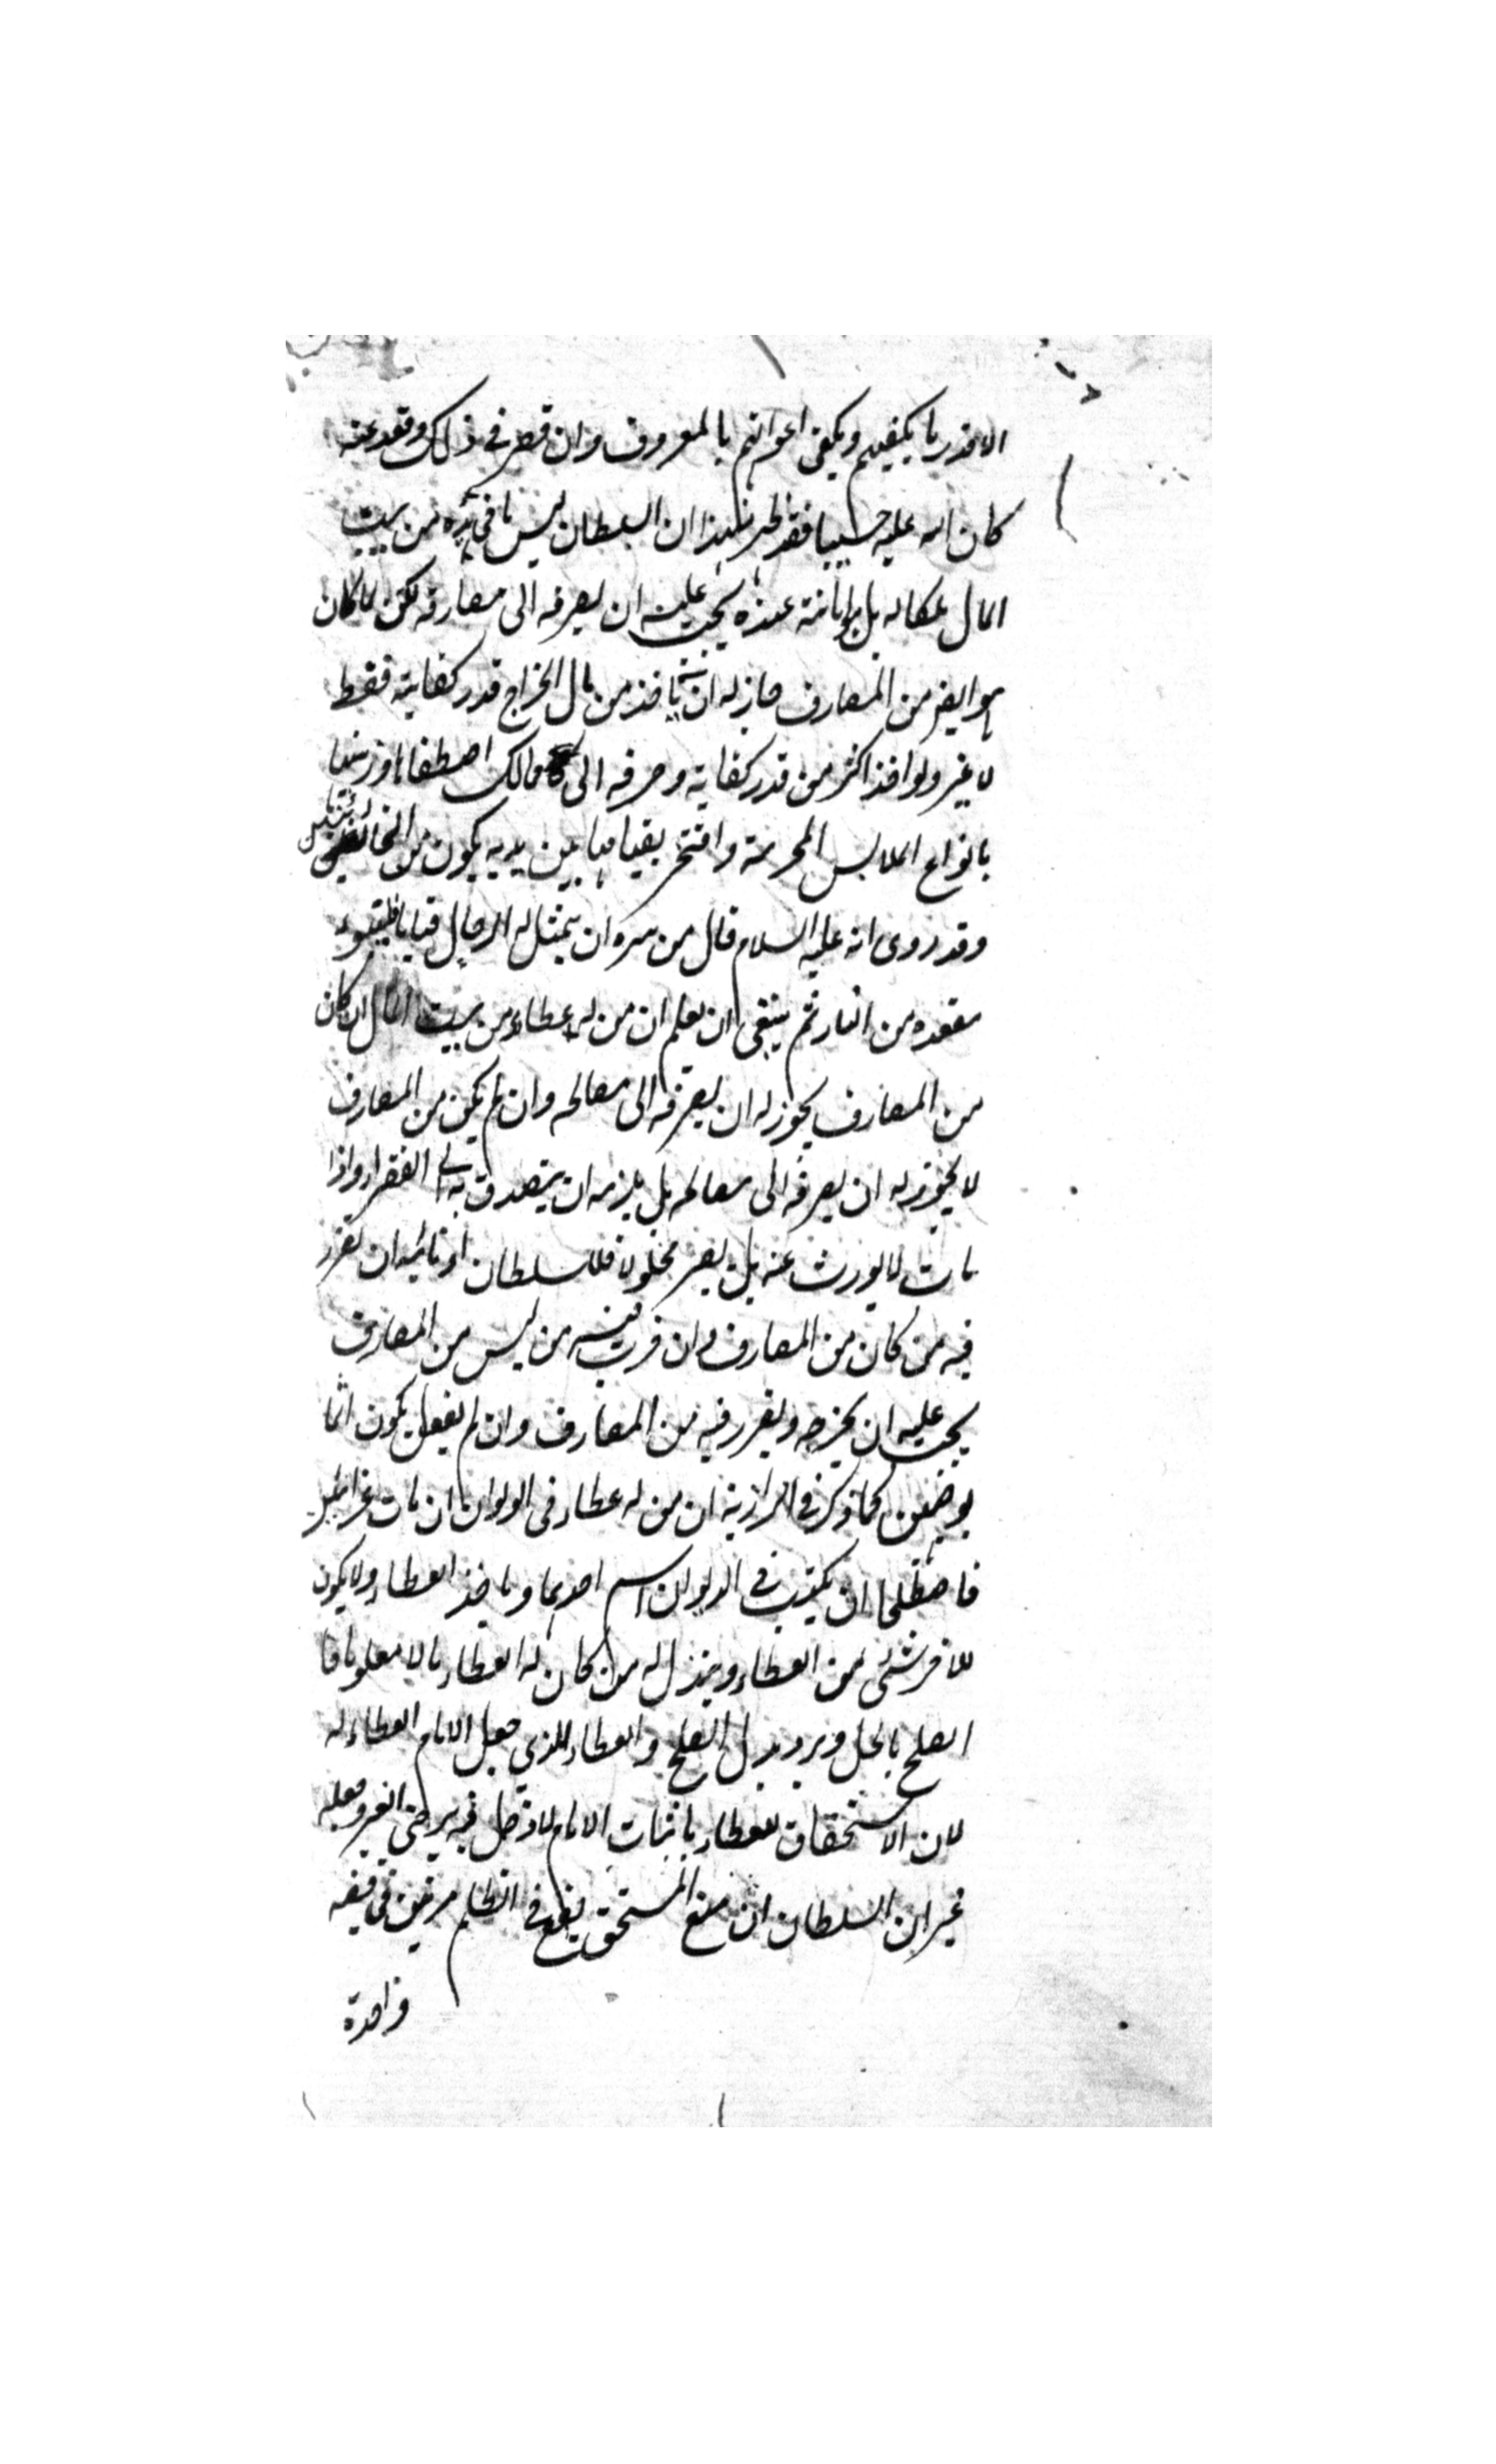 الا قدر ما يكفيهم ويكفى اعوانهم بالمعروف وان قصر في ذلك وقعد عنه
كان الله عليه حسيبا فقد ظهر بهذا ان السلطان ليس ما في يده من بيت
المال ملكا له بل هو امانة عنده يجب عليه ان يصرفه الى مصارفه لكن لما كان
هو ايضا من المصارف جاز له ان يأخذ من مال الخراج قدر كفايته فقط
لا غير ولو اخذ اكثر من قدر كفايته وصرفه الى مماليك اصطفاها وزينها
بانواع الملابس المحرمة وافتخر بقيامها بين يديه يكون من الخائنين
وقد روى انه عليه السلام قال من سره ان يتمثل له الرجال قياما فليتبوء
مقعده من النار ثم ينبغى ان يعلم ان من له عطاء من بيت المال ان كان
من المصارف يجوز له ان يصرفه الى مصالحه وان لم يكن من المصارف
لا يجوز له ان يصرفه الى مصالحه بل يلزمه ان يتصدق به الى الفقراء واذا
مات لا يورث عنه بل يصير محلولا فللسلطان او نائبه ان يقرر
فيه من كان من المصارف وان قرر فيه من ليس من المصارف
يجب عليه ان يخرجه ويقرر فيه من المصارف وان لم يفعل يكون اثما
بوضعين كما ذكر في البزازية ان من له عطاء في الديوان ان مات عن ابنين
فاصطلحا ان يكتب في الديوان اسم احدهما وياخذ العطاء ولا يكون
للاخر شئ من العطاء ويبذل له من كان له العطاء مالا معلوما فا
الصلح باطل ويرد بدل الصلح والعطاء للذي جعل الامام العطاء له
لان الاستحقاق للعطاء باثبات الامام لا دخل فيه لرضى الغير وجعله
غير ان السلطان ان منع المستحق يقع في الظلم مرتين في قضية
واحدة